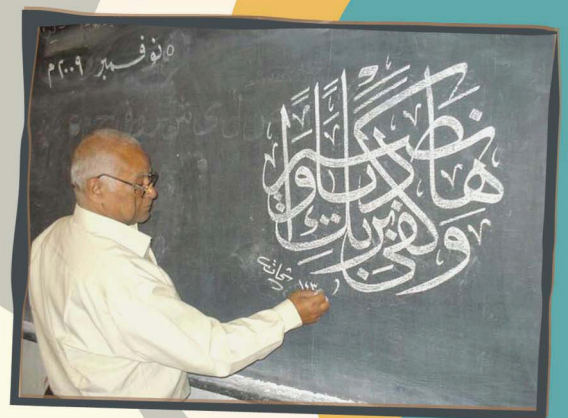 ٥ نوفمبر ٢٠٠٩ م
وكفى بربك هاديا ونصيرا
١٤٣